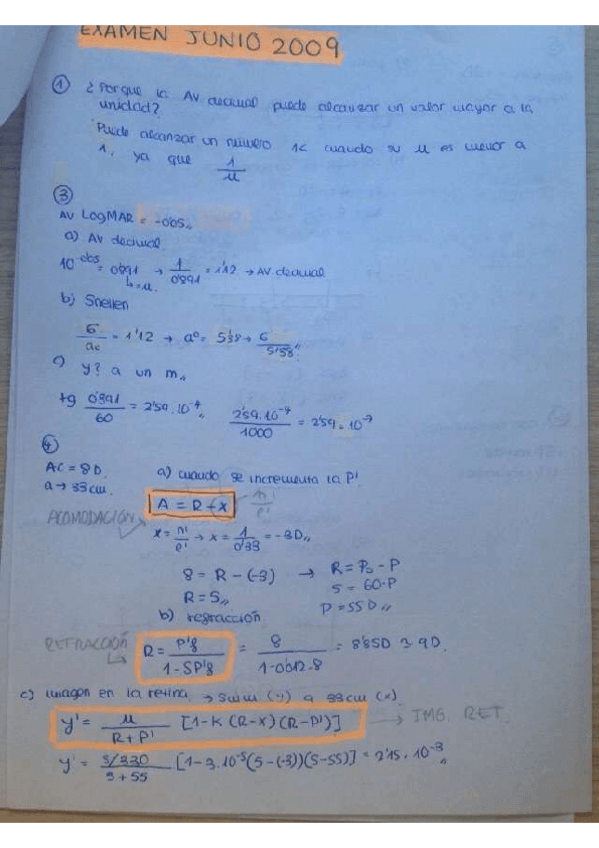 EXAMEN JUNIO 2009
① ¿Porque la AV decimal puede alcanzar un valor mayor a la
unidad?
Puede alcanzar un número 1< cuando su u es menor a
1, ya que 1/u
③
AV LogMAR = -0'05,,
a) AV decimal.
10^0'05 = 0'891 → 1/0'891 = 1'12 → AV decimal
↳ = u.
b) Snellen
6/a0 = 1'12 → a0 = 5'38 → 6/5'38,,
c) y? a un m,,
tg 0'891/60 = 2'59·10^-4,, 2'59·10^-4/1000 = 2'59·10^-7
④
AC = 8D.
a → 33cm.
a) cuando se incrementa la P'
A = R - x
n'/l'
ACOMODACIÓN
x = n'/l' → x = 1/0'33 = -3D,,
8 = R - (-3) → R = P0 - P
R = 5,, 5 = 60-P
P = 55D,,
b) refracción
REFRACCIÓN
R = P'g/1-SP'g = 8/1-0'012·8 = 8'85D ≃ 9D.
c) imagen en la retina. → 5mm (y) a 33cm (x).
y' = u/R+P' [1-K(R-x)(R-P')] → IMG. RET.
y' = 5/330/5+55 [1-3·10^-5(5-(-3))(5-55)] = 2'15·10^-3,,